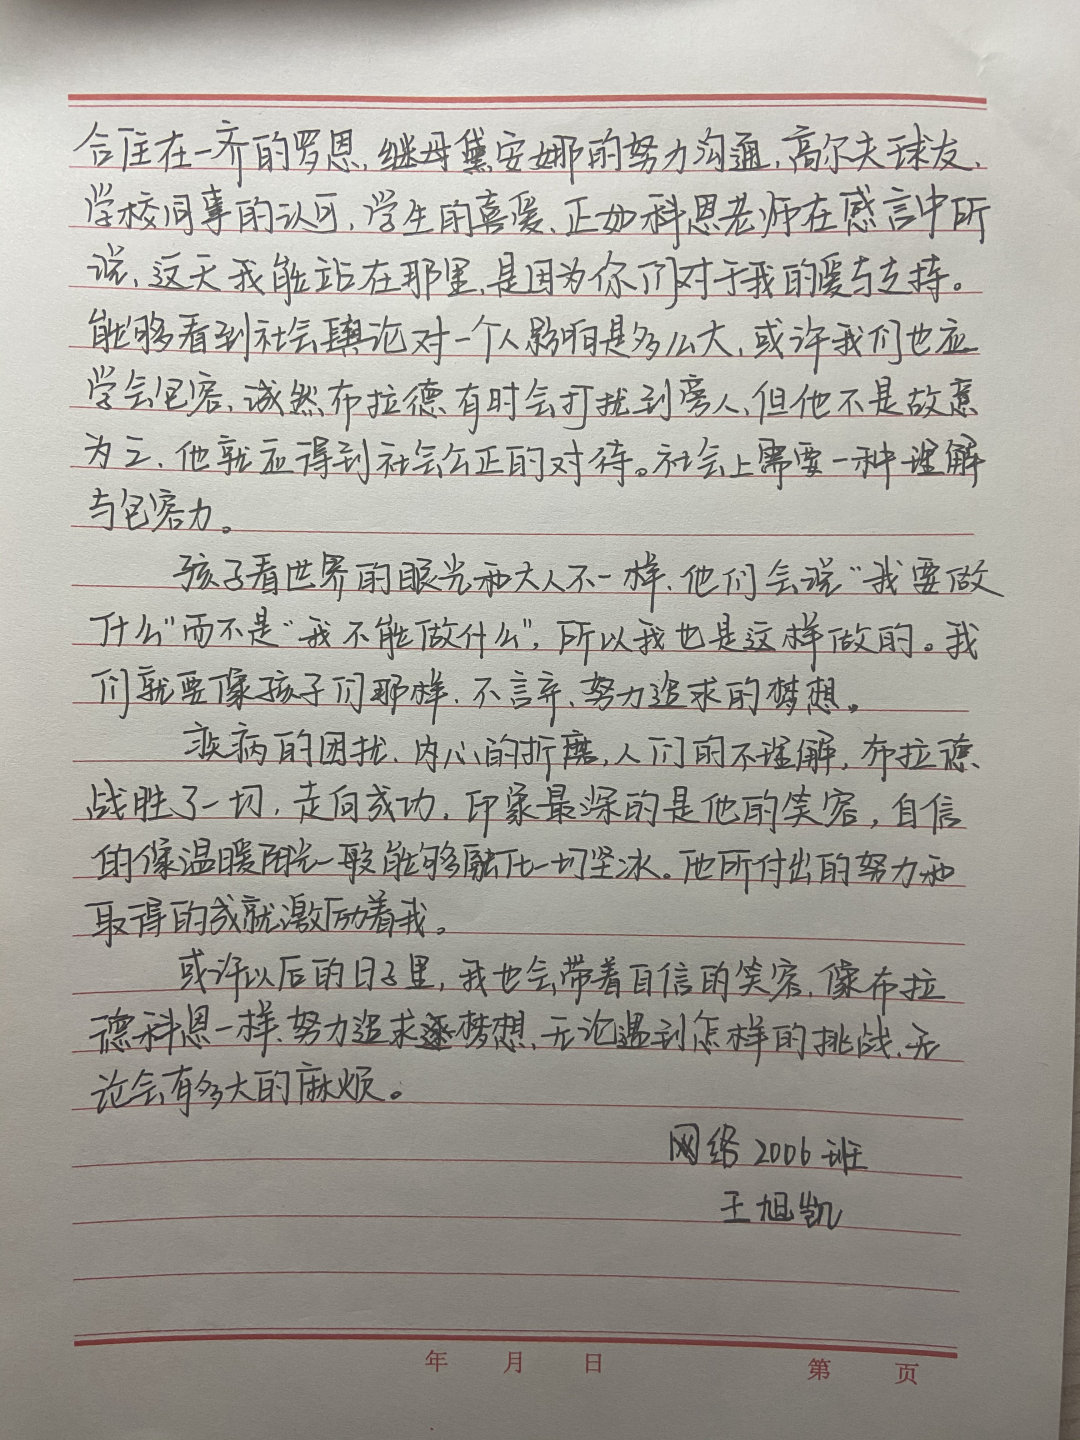 合住在一齐的罗恩,继母黛安娜的努力沟通,高尔夫球友、
学校同事的认可,学生的喜爱、正如科恩老师在感言中所
说,这天我能站在那里,是因为你们对于我的爱与支持。
能够看到社会舆论对一个人影响是多么大,或许我们也应
学会包容,诚然布拉德有时会打扰到旁人,但他不是故意
为之、他就应得到社会公正的对待。社会上需要一种理解
与包容力。
孩子看世界的眼光和大人不一样,他们会说“我要做
什么”而不是“我不能做什么”,所以我也是这样做的。我
们就要像孩子们那样,不言弃、努力追求的梦想。
疾病的困扰、内心的折磨,人们的不理解,布拉德
战胜了一切,走向成功,印象最深的是他的笑容,自信
的像温暖阳光一般能够融化一切坚冰。他所付出的努力和
取得的成就激励着我。
或许以后的日子里,我也会带着自信的笑容,像布拉
德科恩一样、努力追求逐梦想,无论遇到怎样的挑战、无
论会有多大的麻烦。
网络2006班
王旭凯
年 月 日 第 页